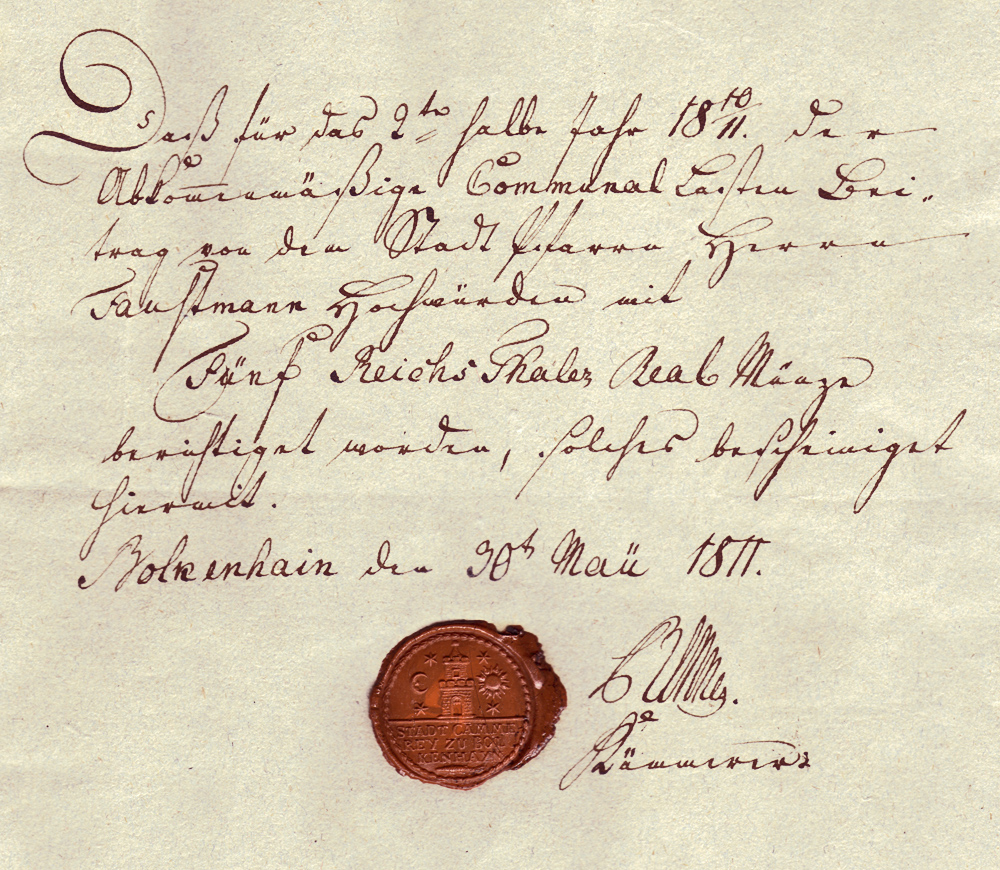 Daß für das 2te halbe Jahr 18 10/11. der
Abkommenmäßige Communal Lasten Bei-
trag von dem Stadt Pfarrn Herrn
Faustmann Hochwürden mit
Fünf Reichs Thaler Real Münze
berichtiget worden, solches bescheiniget
hiermit.
Bolkenhain den 30t Maü 1811.
Kämmerer
STADT CAMME
REY ZU BOL
KENHAYN